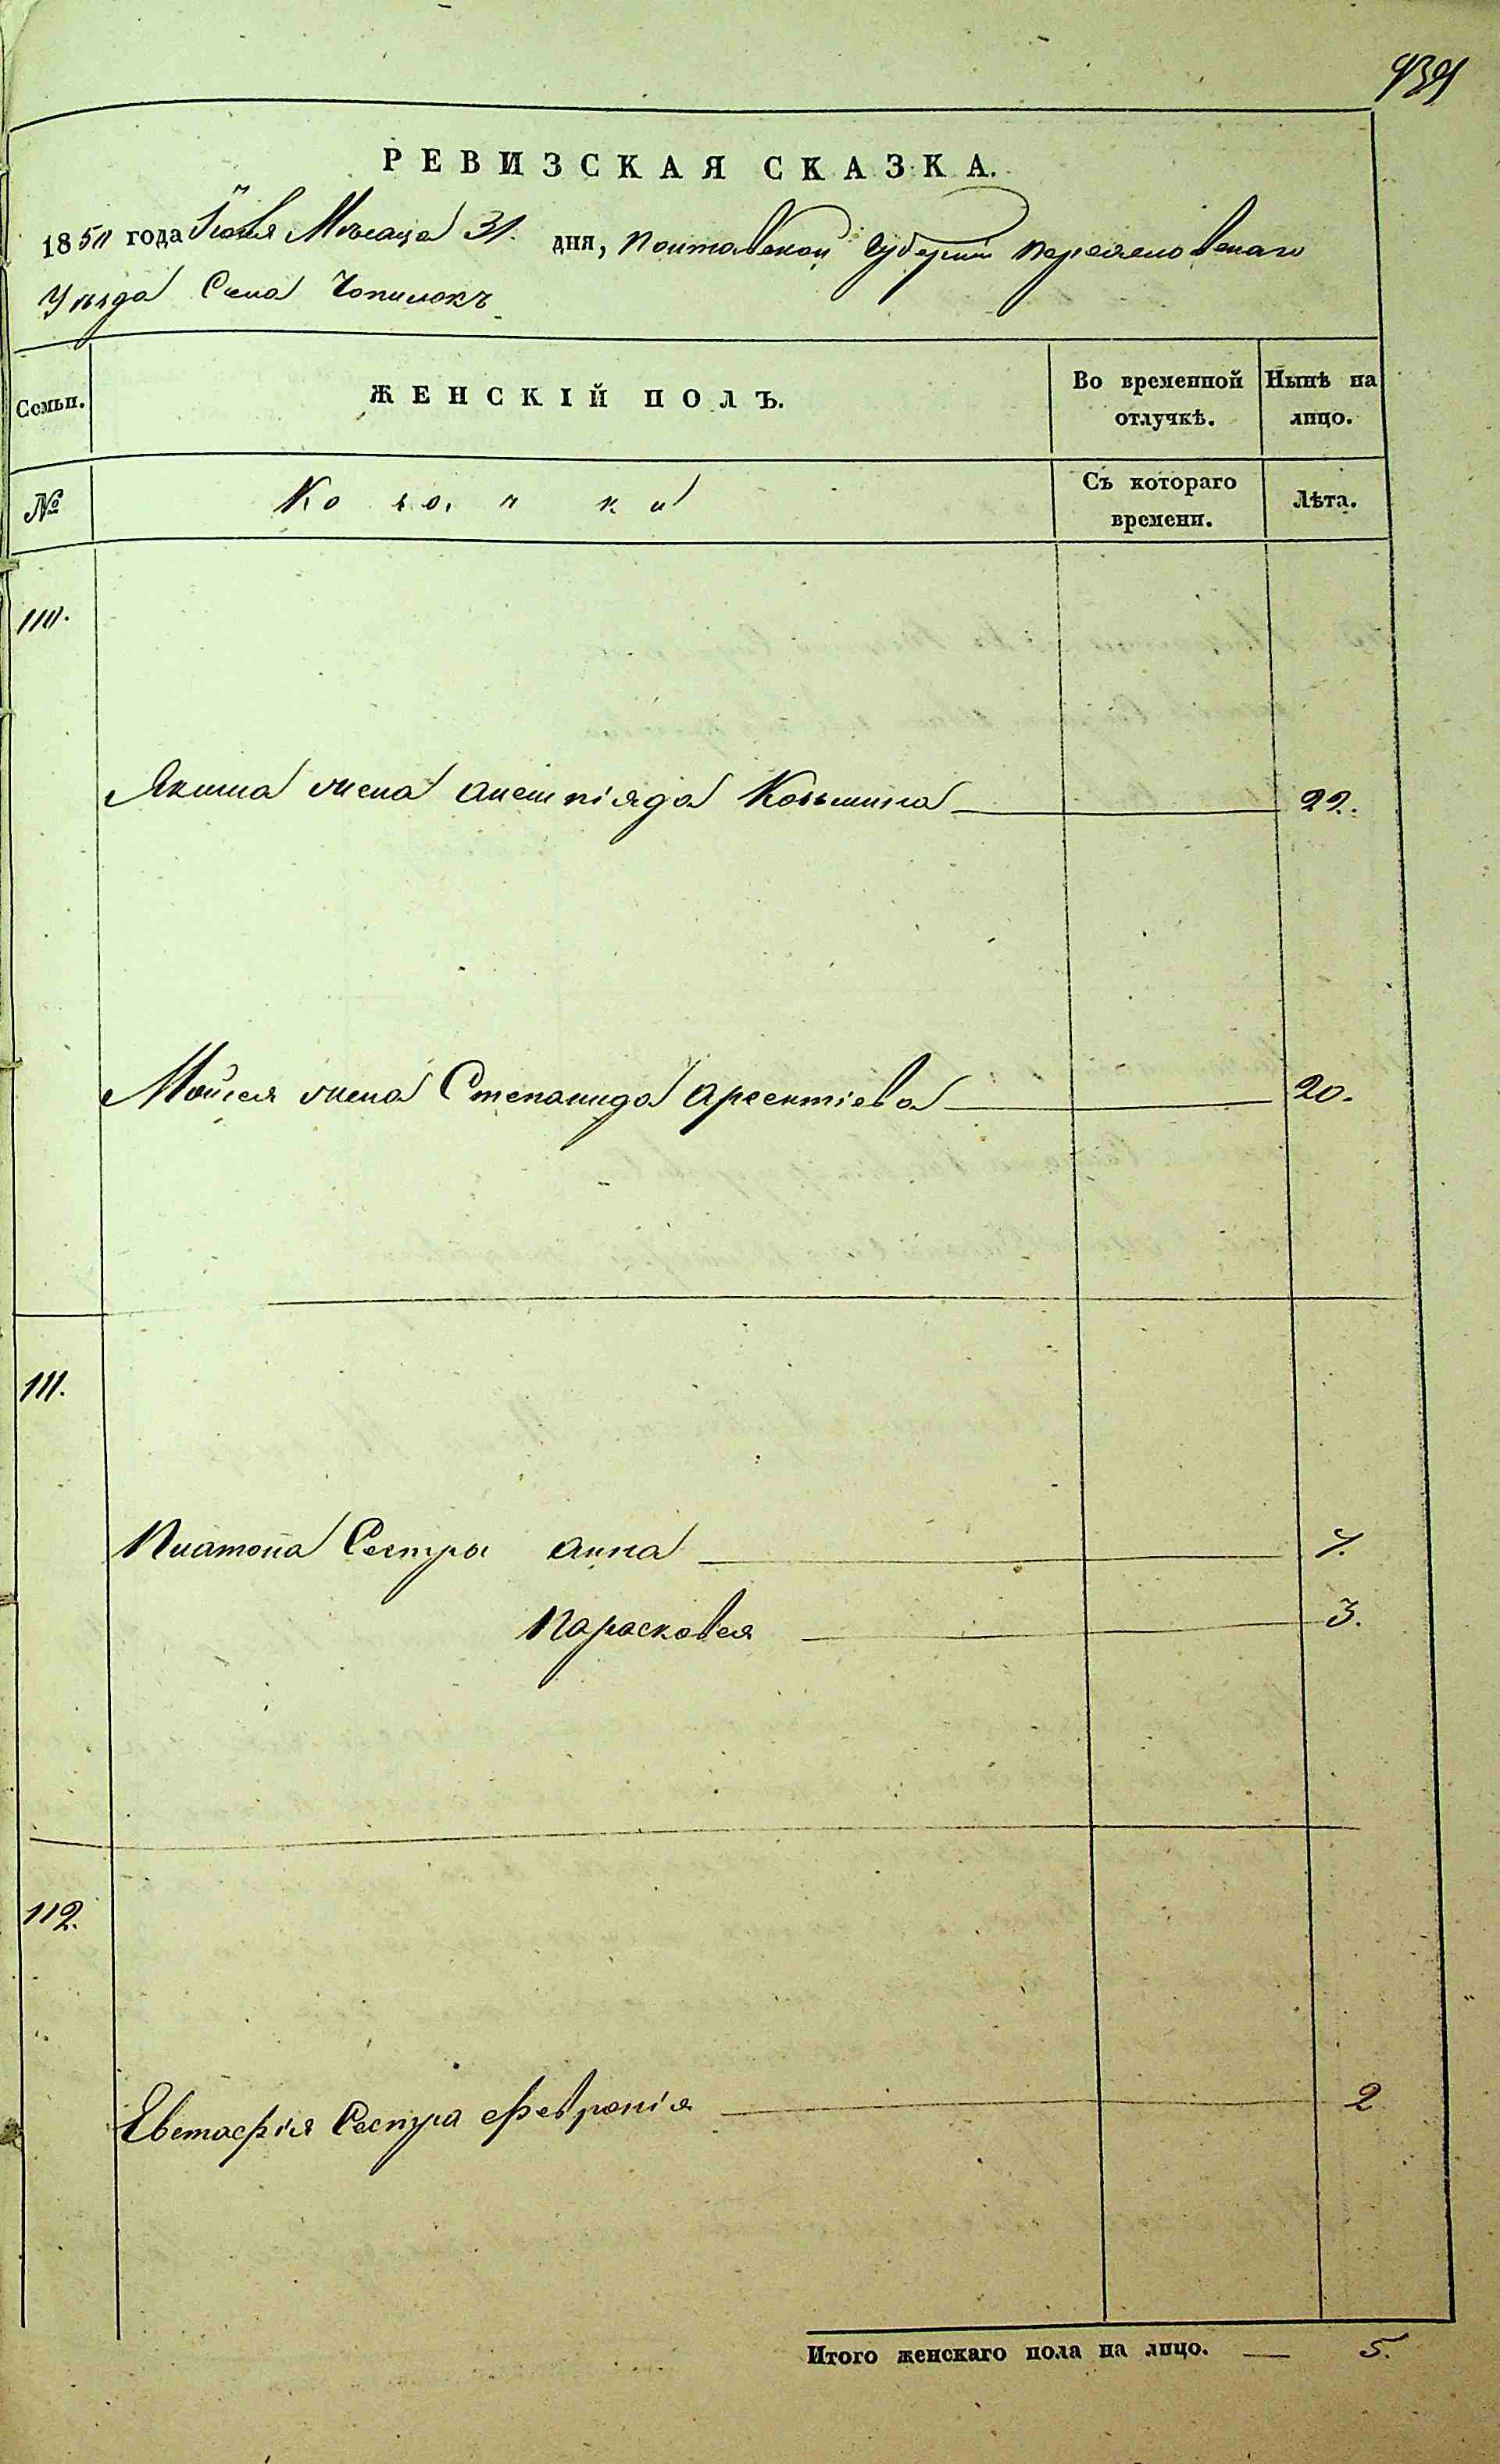 439
РЕВИЗСКАЯ СКАЗКА.
1850 года Іюля Месяца 31. дня, Полтавской Губерніи Переяславскаго
Уезда Села Чопилокъ
Семьи. ЖЕНСКІЙ ПОЛЪ. Во временной отлучкѣ. Нынѣ на лицо.
№ Козачки Съ котораго времени. Лѣта.
110.
Якима жена Олемпіяда Козьмина 22.
Мойсея жена Степанида Арсентіева 20.
111.
Платона Сестры Анна 7.
Парасковея 3.
112.
Евстафія Сестра Февронія 2
Итого женскаго пола на лицо. — 5.